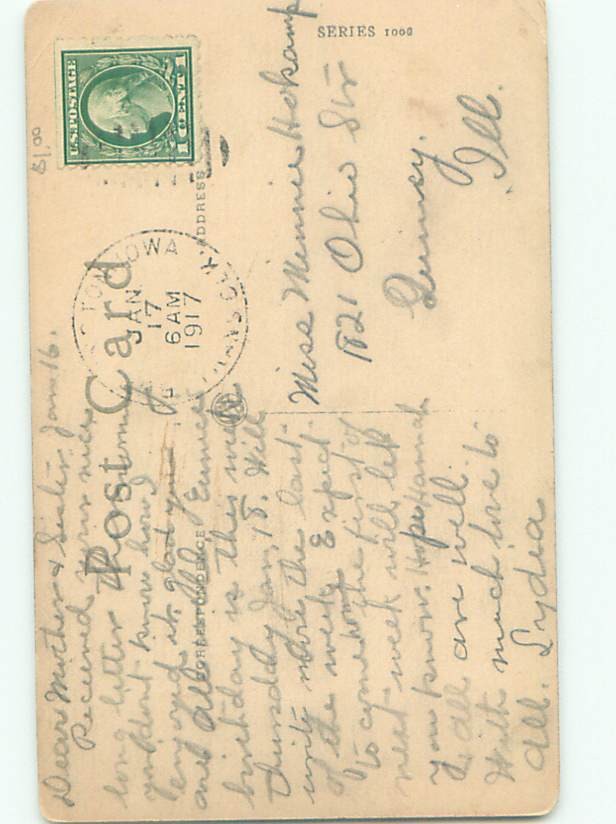 SERIES 1000
Post Card
ADDRESS
CORRESPONDENCE
U.S. POSTAGE
1 CENT 1
$1.00
TON IOWA
JAN
17
6 AM
1917
Miss Minnie Hokamp
1821 Ohio Str
Quincy.
Ill.
Jan 16.
Dear Mother & Sister
Received your nice
long letter
you don't know how I
enjoyed it, glad you
are all Eunice
birthday is this week
Thursday Jan, 18. Will
write more the last
of the week. Expect
to come home the first of
next week will let
you know. Hope Hannah
& all are well.
With much love to
all. Lydia